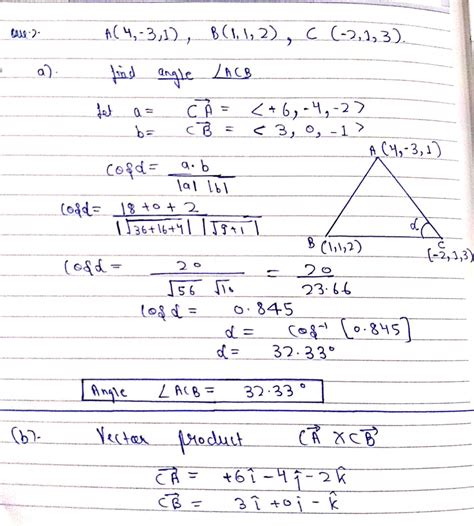 A(4,-3,1), B(1,1,2), C(-2,1,3).
a). find angle ∠ACB
let a = CA⃗ = <+6,-4,-2>
b = CB⃗ = <3, 0, -1>
A(4,-3,1)
cosα = a.b / |a| |b|
cosα = 18+0+2 / |√36+16+4| |√9+1|
α
B(1,1,2) C (-2,1,3)
cosα = 20 / √56 √10 = 20 / 23.66
cosα = 0.845
α = cos⁻¹ [0.845]
α = 32.33°
Angle ∠ACB = 32.33°
(b). Vector product CA⃗ × CB⃗
CA⃗ = +6î -4ĵ -2k̂
CB⃗ = 3î +0ĵ - k̂